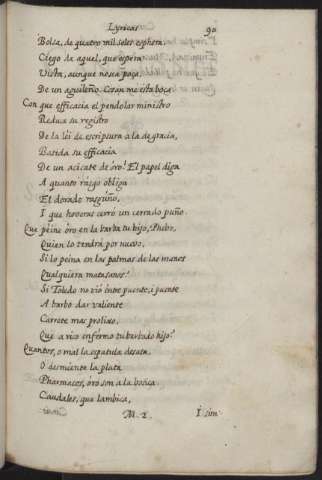 Lyricas
90
Bolsa, de quatro mil soles esphera.
Ciego da aquel, que espera
Vista, aunque no sea poca,
De un aguileño. Coran me esta boca
Con que efficacia el pendolar ministro
Reduxa su registro
De la lei de escriptura a la de gracia,
Bastda su efficacia
De un acicate de óro! El papel diga
A quanto riesgo obliga
El dorado rasguño,
I que heroras cerró un cerrado puño.
Que peine óro en la barba tu hijo, Phebo,
Quien lo tendrá por nuevo,
Si lo peina en las palmas de las manos
Qualquiera matasanos?
Si Toledo no vió entre puente, i puente
A barbo dar valiente
Carrete mas prolixo,
Que a rico enfermo tu barbado hijo?
Quantos, o mal la espatula desata,
O desmiente la plata
Pharmacos, oro son a la botica.
Caudales, que lambica,
M. 2.
I sim